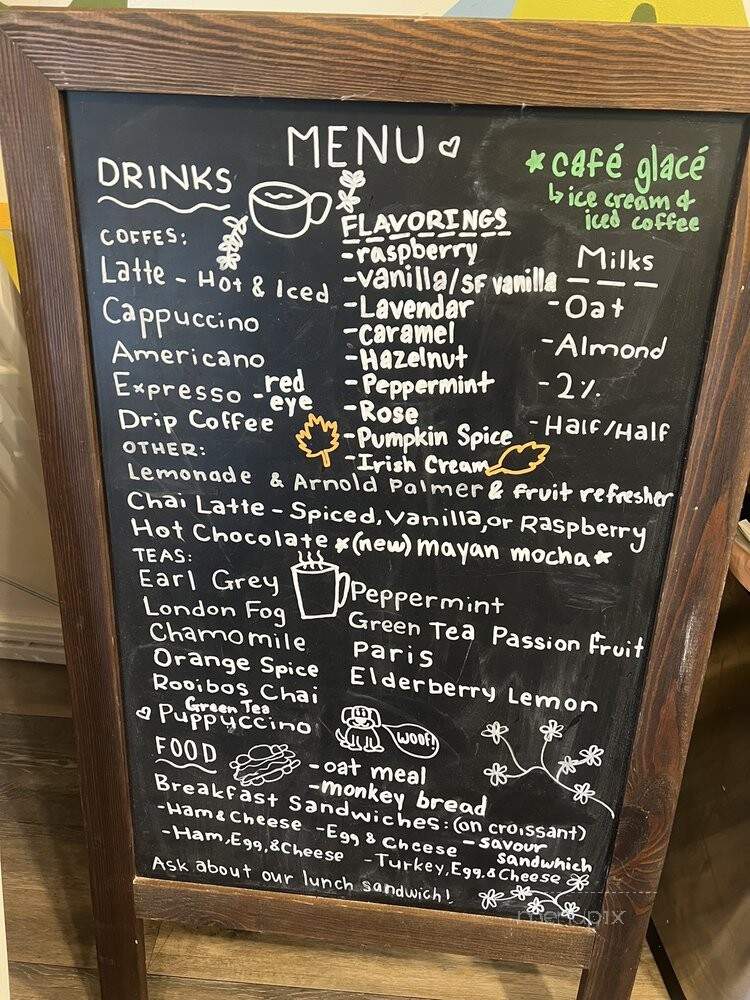 MENU
DRINKS
COFFES:
Latte - Hot & Iced
Cappuccino
Americano
Expresso - red eye
Drip Coffee
FLAVORINGS
- raspberry
- vanilla/SF vanilla
- Lavendar
- caramel
- Hazelnut
- Peppermint
- Rose
- Pumpkin Spice
- Irish Cream
* café glacé
↳ ice cream &
iced coffee
Milks
- Oat
- Almond
- 2%
- Half/Half
OTHER:
Lemonade & Arnold Palmer & fruit refresher
Chai Latte - Spiced, Vanilla, or Raspberry
Hot Chocolate *(new) mayan mocha*
TEAS:
Earl Grey
London Fog
Chamomile
Orange Spice
Rooibos Chai
Green Tea
Peppermint
Green Tea Passion Fruit
Paris
Elderberry Lemon
Puppyccino
WOOF!
FOOD
- oat meal
- monkey bread
Breakfast Sandwiches: (on croissant)
- Ham & Cheese - Egg & Cheese - savour
sandwhich
- Ham, Egg, & Cheese - Turkey, Egg, & Cheese
Ask about our lunch sandwich!
menupix